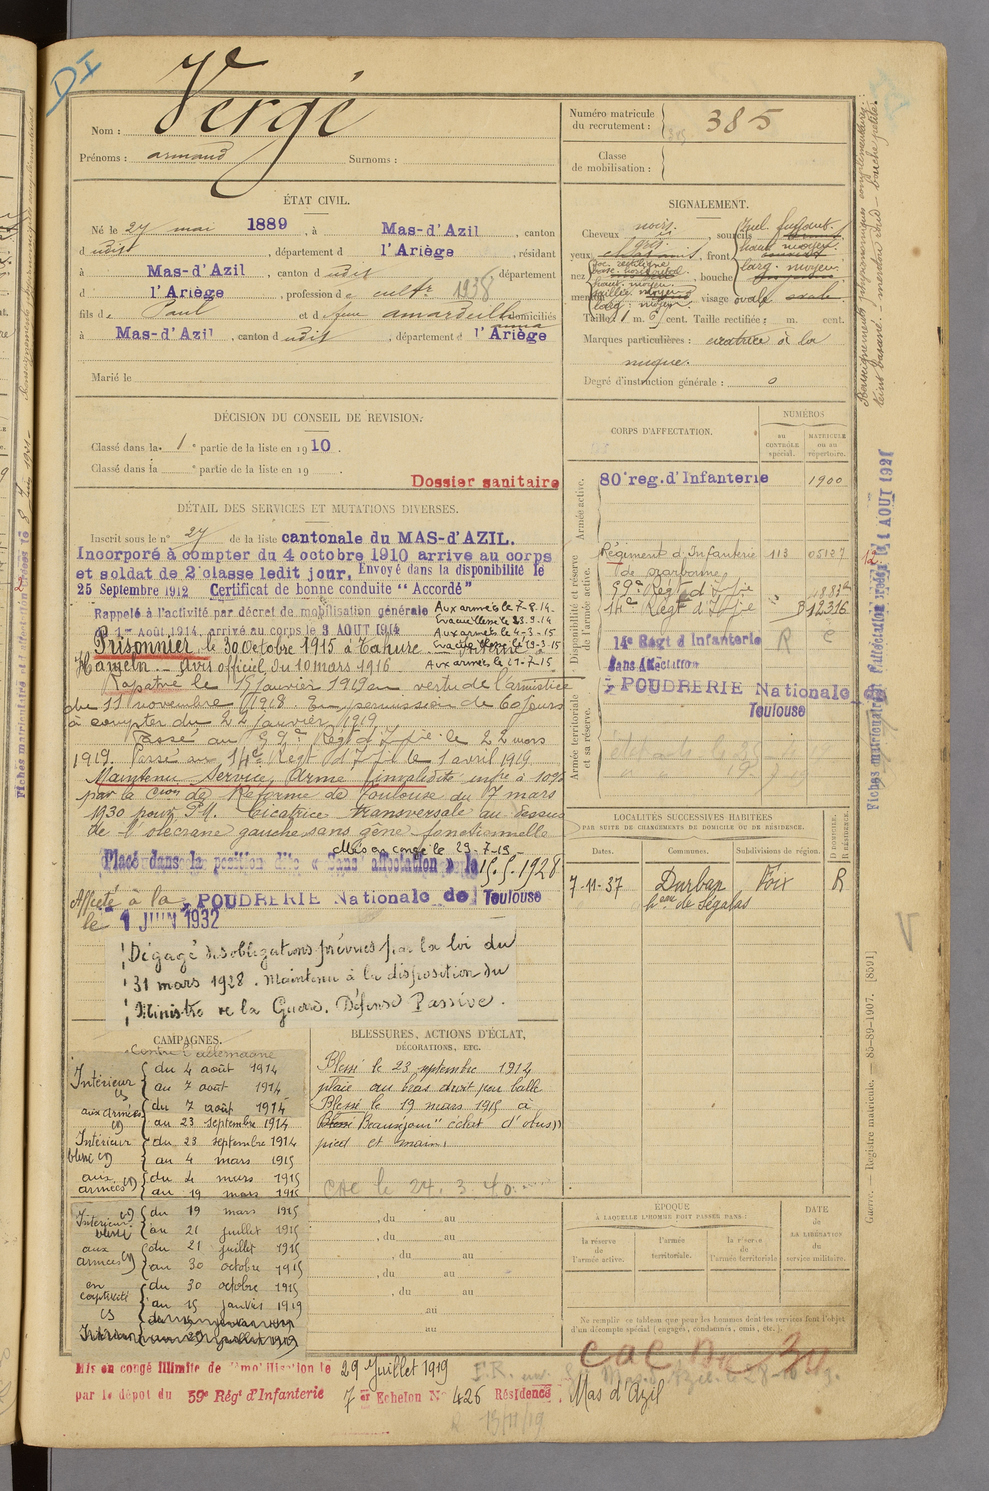 DI
Nom : Vergé
Prénoms : armand Surnoms :
Numéro matricule
du recrutement : 385
Classe
de mobilisation :
ÉTAT CIVIL.
Né le 27 mai 1889, à Mas-d'Azil, canton
d udit, département d l'Ariège, résidant
à Mas-d'Azil, canton d udit département
d l'Ariège, profession de cultr 1938
fils de Paul et de feue amardeilh domiciliés
anna
à Mas-d'Azil, canton d udit, département d l'Ariège
Marié le
SIGNALEMENT.
Cheveux noirs. sourcils
yeux , front
nez , bouche
menton visage ovale
Taille : 1 m. 6 cent. Taille rectifiée : m. cent.
Marques particulières : cicatrice à la
nuque.
Degré d'instruction générale : 0
Renseignements physionomiques complémentaires :
teint basané – menton rond – bouche petite.
DÉCISION DU CONSEIL DE REVISION.
Classé dans la 1e partie de la liste en 1910.
Classé dans la e partie de la liste en 19 .
Dossier sanitaire
DÉTAIL DES SERVICES ET MUTATIONS DIVERSES.
Inscrit sous le n° 27 de la liste cantonale du MAS-d'AZIL.
Incorporé à compter du 4 octobre 1910 arrive au corps
et soldat de 2e classe ledit jour. Envoyé dans la disponibilité le
25 Septembre 1912 Certificat de bonne conduite "Accordé"
Rappelé à l'activité par décret de mobilisation générale
du 1er Août 1914, arrivé au corps le 3 AOUT 1914
Aux armées le 7-8-14.
Evacué blessé le 23.9.14
Aux armées le 4-3-15
Evacué blessé le 19-3-15
Aux armées le 21-7-15
Prisonnier le 30 octobre 1915 à Tahure. Interné à
Hameln. – Avis officiel du 10 mars 1916
Rapatrié le 15 janvier 1919 en vertu de l'armistice
du 11 novembre 1918. En permission de 60 jours
à compter du 22 janvier 1919
Passé au 59e Régt d'Iie le 22 mars
1919. Passé au 14e Régt d'Iie le 1 avril 1919
Maintenu Service Armé invalidité infre à 10%
par la Cion de Réforme de Toulouse du 7 mars
1930 pour P.M. Cicatrice transversale au dessus
de l'olécrane gauche sans gêne fonctionnelle
Mis en congé le 29-7-19
Placé dans la position dite « Sans affectation » le 15.5.1928
Affecté à la POUDRERIE Nationale de Toulouse
le 1 JUIN 1932
Dégagé des obligations prévues par la loi du
31 mars 1928. Maintenu à la disposition du
Ministre de la Guerre. Défense Passive.
CORPS D'AFFECTATION.
NUMÉROS
au
CONTRÔLE
spécial.
MATRICULE
ou au
répertoire.
Armée active.
80e reg. d'Infanterie 1900
Disponibilité et réserve
de l'armée active.
Régiment d'Infanterie 113 05127
de Narbonne
59e Régt d'Iie
14e Régt d'Iie 12316
14e Régt d'Infanterie R
Sans Affectation
Armée territoriale
et sa réserve.
POUDRERIE Nationale de
Toulouse
LOCALITÉS SUCCESSIVES HABITÉES
PAR SUITE DE CHANGEMENTS DE DOMICILE OU DE RÉSIDENCE.
Dates. Communes. Subdivisions de région. D DOMICILE. R RÉSIDENCE.
7-11-37 Durban Foix R
heau de Ségalas
CAMPAGNES.
Contre l'allemagne
Intérieur du 4 août 1914
au 7 août 1914
aux armées du 7 août 1914
au 23 septembre 1914
Intérieur du 23 septembre 1914
blessé au 4 mars 1915
aux du 4 mars 1915
armées au 19 mars 1915
Intérieur du 19 mars 1915
blessé au 21 juillet 1915
aux du 21 juillet 1915
armées au 30 octobre 1915
en du 30 octobre 1915
captivité au 15 janvier 1919
BLESSURES, ACTIONS D'ÉCLAT,
DÉCORATIONS, ETC.
Blessé le 23 septembre 1914
plaie au bras droit par balle
Blessé le 19 mars 1915 à
Beauséjour "éclat d'obus"
pied et main.
CAC le 24.3.40
, du au
, du au
, du au
, du au
, du au
au
au
ÉPOQUE
À LAQUELLE L'HOMME DOIT PASSER DANS :
la réserve
de
l'armée active.
l'armée
territoriale.
la réserve
de
l'armée territoriale
DATE
de
LA LIBÉRATION
du
service militaire.
Ne remplir ce tableau que pour les hommes dont les services font l'objet
d'un décompte spécial (engagés, condamnés, omis, etc.).
Mis en congé illimité de démobilisation le 29 Juillet 1919
par le dépôt du 59e Régt d'Infanterie 7er Echelon N° 426 Résidence : Mas d'Azil
Guerre. — Registre matricule. — 85-89-1907. [8591]